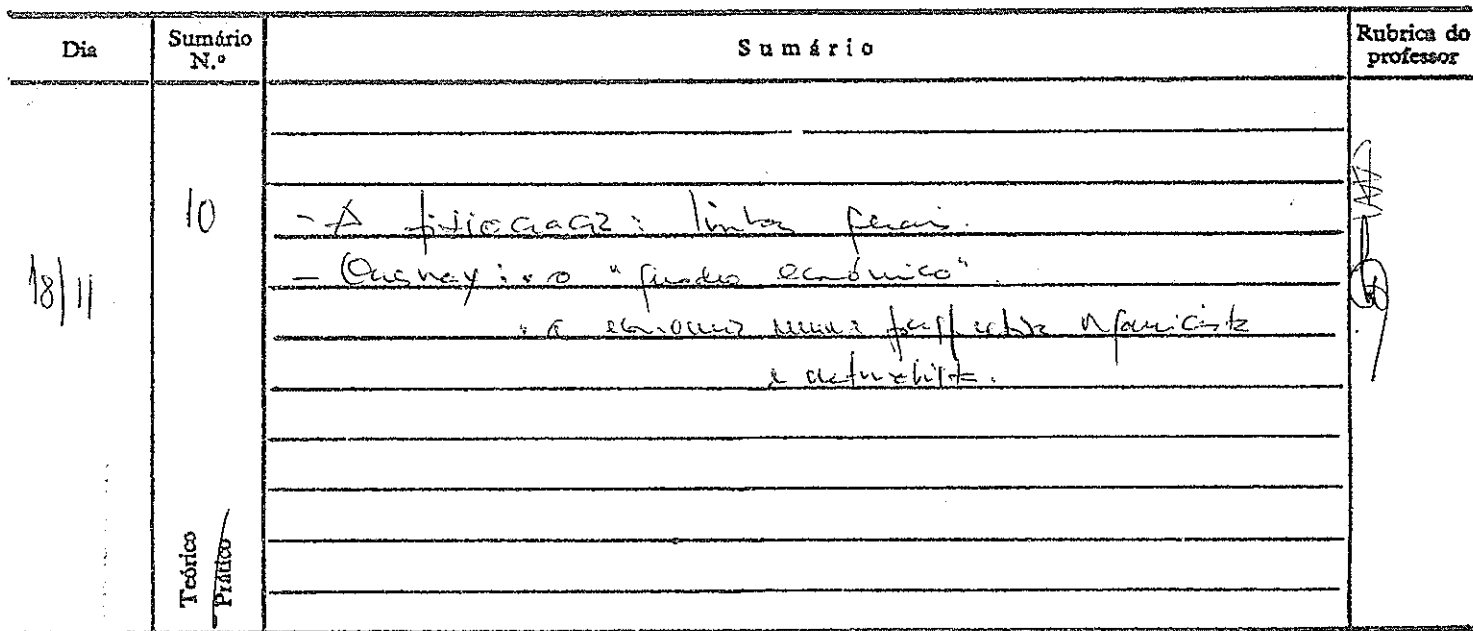 Dia
Sumário N.º
Sumário
Rubrica do professor
18/11
10
- A fisiocracia: linhas gerais.
- Quesnay: . o "quadro económico".
. a economia numa perspectiva organicista
e naturalista.
Teórico
Prático